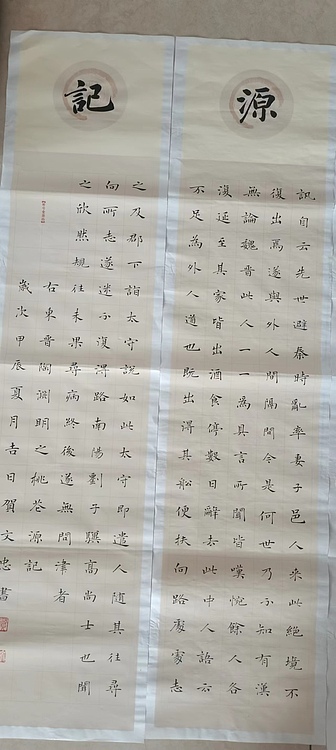 源
訊自云先世避秦時亂率妻子邑人来此絕境不
復出焉遂與外人間隔問今是何世乃不知有漢
無論魏晋此人一一為具言所聞皆嘆惋餘人各
復延至其家皆出酒食停數日辭去此中人語云
不足為外人道也既出得其船便扶向路處處志
記
之及郡下詣太守說如此太守即遣人隨其往尋
向所志遂迷不復得路南陽劉子驥高尚士也聞
之欣然規往未果尋病終後遂無問津者
右東晋陶淵明之桃花源記
歲次甲辰夏月吉日賀文忠書